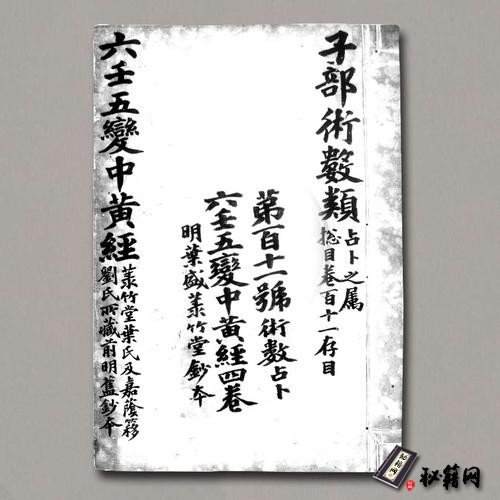 子部術數類占卜之属
總目卷百十一存目
第百十一號術數占卜
六壬五變中黃經四卷
明葉盛菉竹堂鈔本
六壬五變中黃經
菉竹堂葉氏及嘉蔭簃
劉氏所藏前明舊鈔本
秘籍网